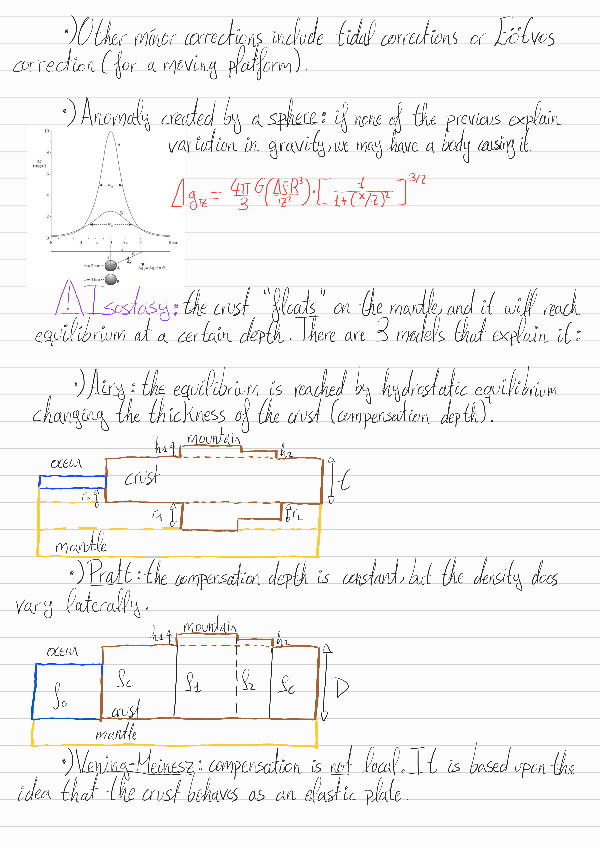 ·) Other minor corrections include tidal corrections or Eötvos
correction (for a moving platform).
·) Anomaly created by a sphere: if none of the previous explain
variation in gravity, we may have a body causing it.
Δg_z = 4π/3 G(ΔρR³/z²)·[1/1+(x/z)²]^3/2
⚠ Isostasy: the crust "floats" on the mantle, and it will reach
equilibrium at a certain depth. There are 3 models that explain it:
·) Airy: the equilibrium is reached by hydrostatic equilibrium
changing the thickness of the crust (compensation depth).
h1 mountain h2
ocean
crust t
r0
r1 r2
mantle
·) Pratt: the compensation depth is constant, but the density does
vary laterally.
h1 mountain h2
ocean
ρo ρc ρ1 ρ2 ρc D
crust
mantle
·) Vening-Meinesz: compensation is not local. It is based upon the
idea that the crust behaves as an elastic plate.